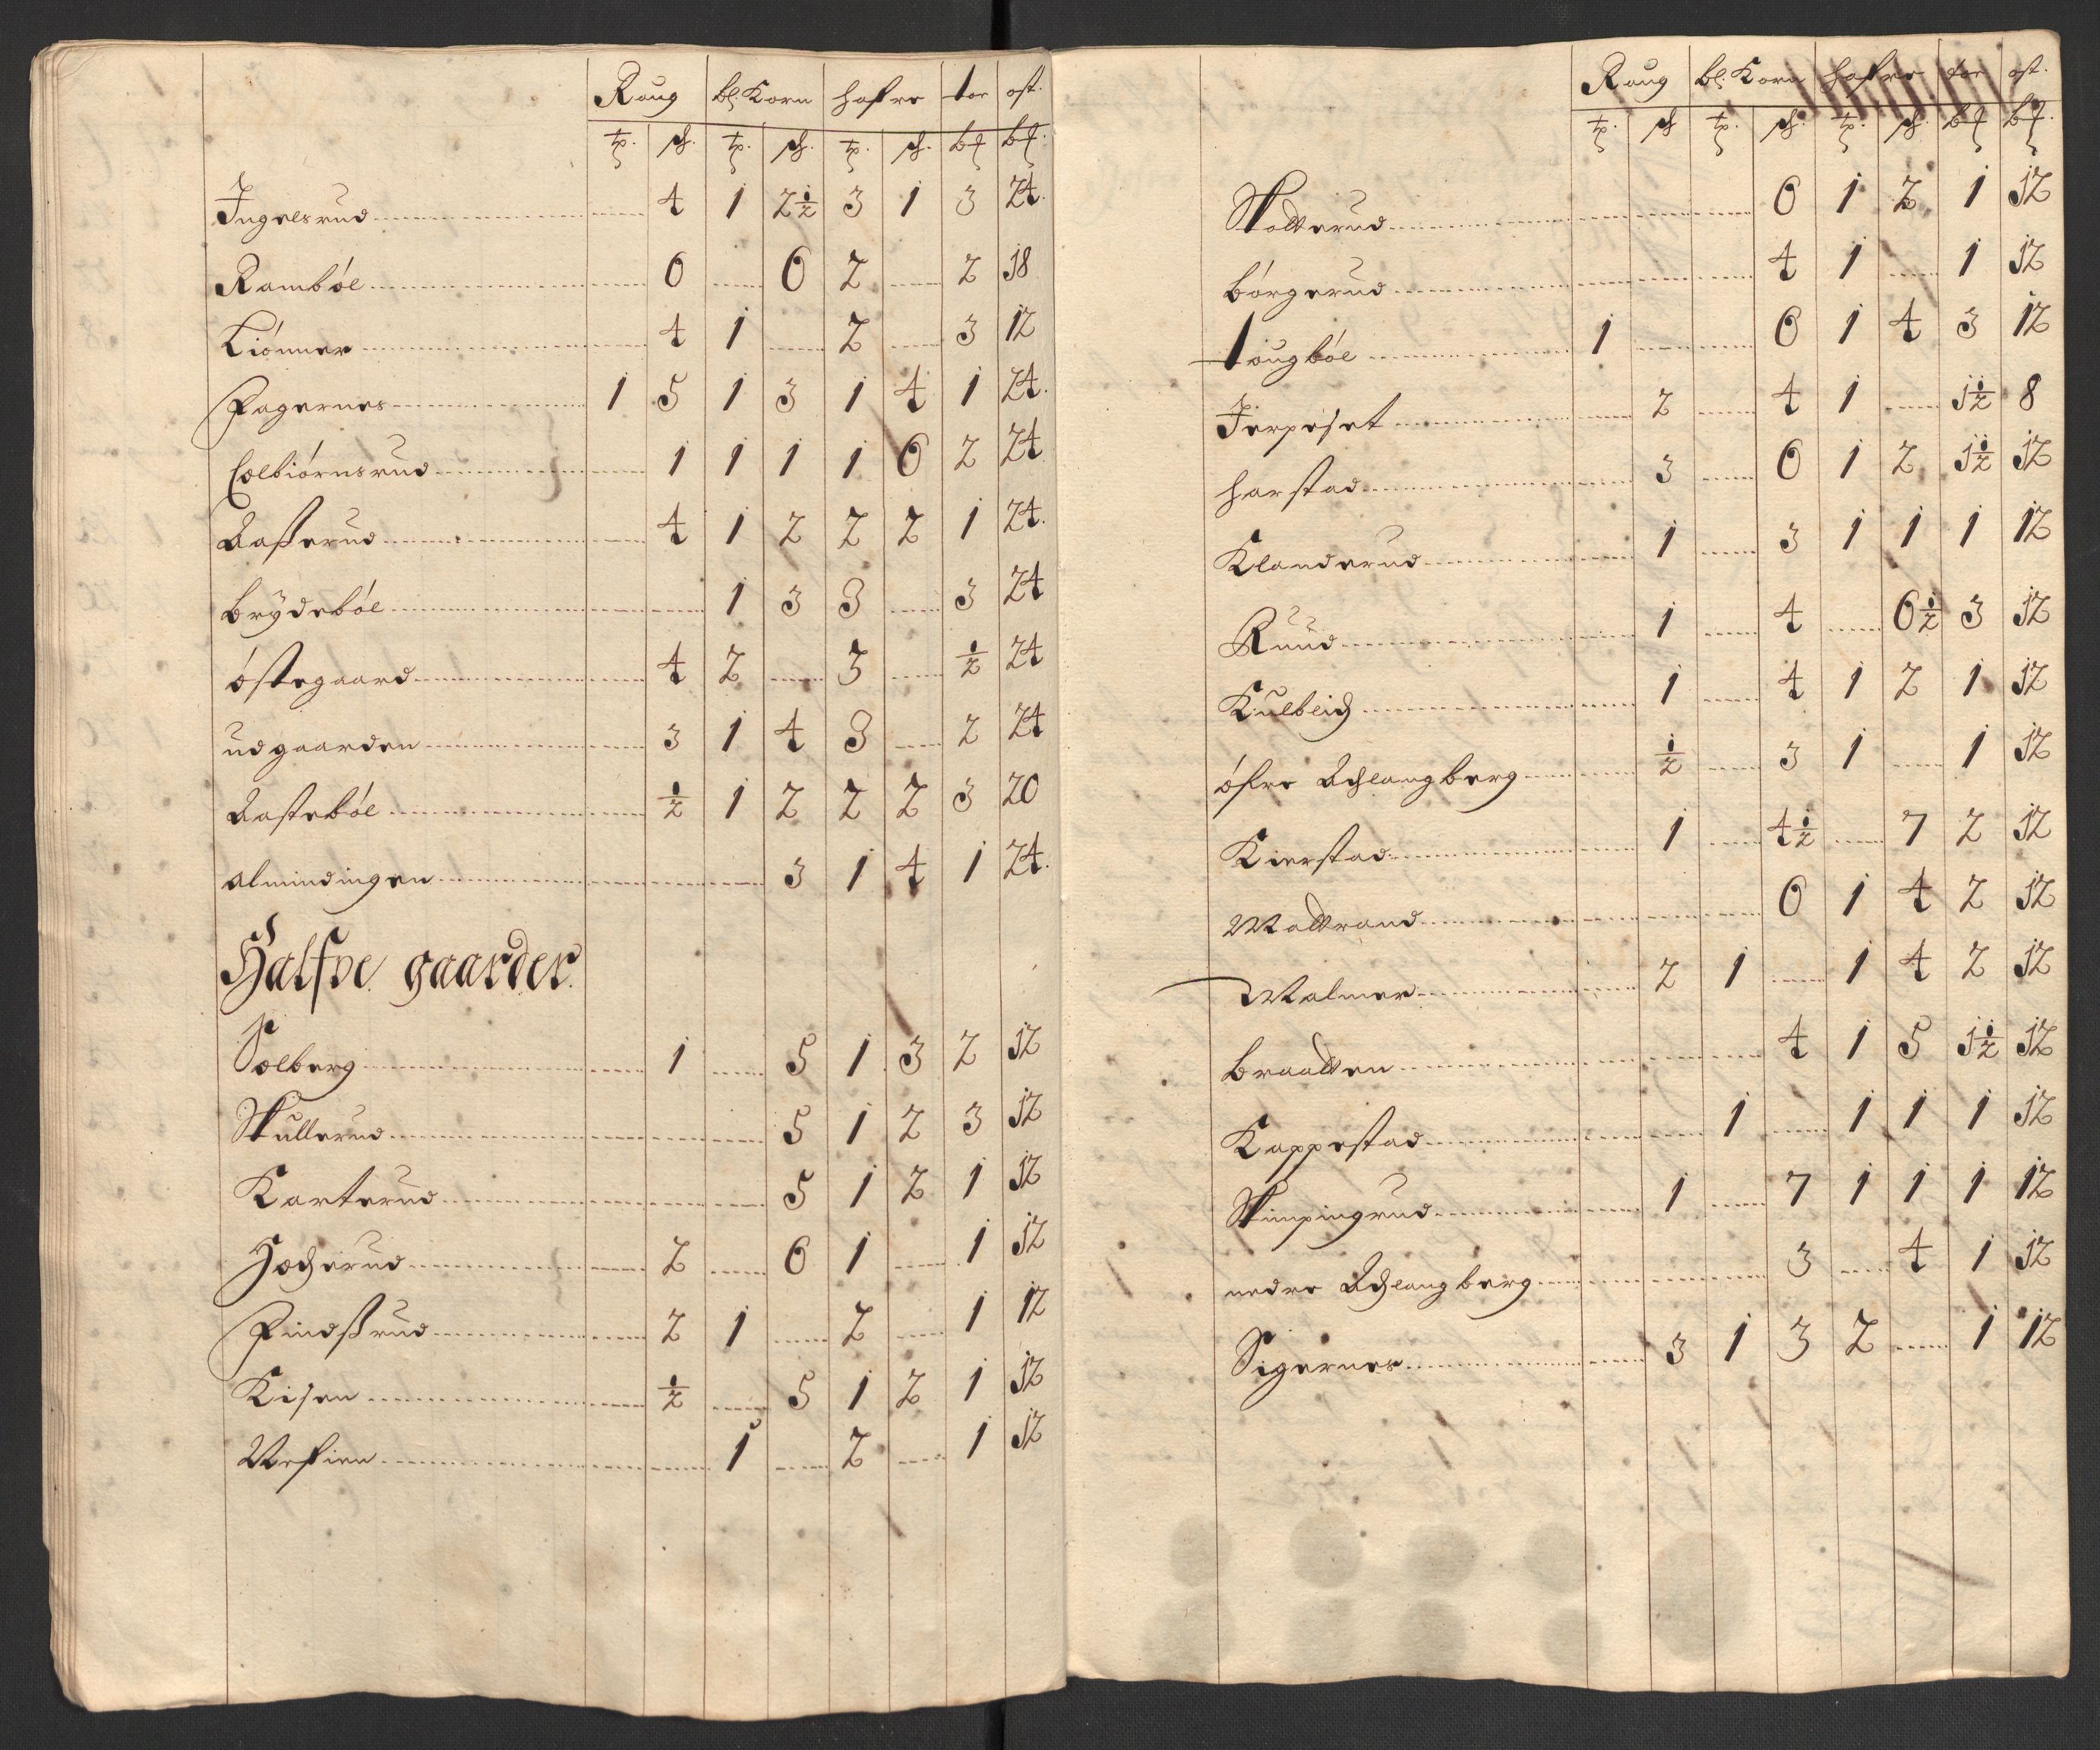 Raug bl: Korn hafre tor ost.
tp. sk. tp. sk. tp. sk. b℔ b℔
Ingelsrud 4 1 2½ 3 1 3 24.
Ramból 6 6 2 2 18
Liónner 4 1 2 3 12
Fagernes 1 5 1 3 1 4 1 24.
Colbiórnsrud 1 1 1 1 6 2 24
Aasserud 4 1 2 2 2 1 24.
Brÿdeból 1 3 3 3 24
óstegaard 4 2 3 ½ 24
udgaarden 3 1 4 3 2 24
Aasteból ½ 1 2 2 2 3 20
almindingen 3 1 4 1 24.
Halfve gaarder
Solberg 1 5 1 3 2 12
Skullerud 5 1 2 3 12
Karterud 5 1 2 1 12
Hocherud 2 6 1 1 12
Findssrud 2 1 2 1 12
Kisen ½ 5 1 2 1 12
1 2 1 12
Raug bl: Korn hafre tor ost.
tp. sk tp. sk. tp. sk. b℔ b℔.
Skotterud 6 1 2 1 12
bórgerud 4 1 1 12
tougból 1 6 1 4 3 12
Jerpeset 2 4 1 1½ 8
harstad 3 6 1 2 1½ 12
Klanderud 1 3 1 1 1 12
Ruud 1 4 6½ 3 12
Kulblich 1 4 1 2 1 12
ófre Achlangberg ½ 3 1 1 12
Kierstad 1 4½ 7 2 12
Mattrand 6 1 4 2 12
Malmer 2 1 1 4 2 12
Braatten 4 1 5 1½ 12
Kappestad 1 1 1 1 12
Skinpingrud 1 7 1 1 1 12
nedre Achlangberg 3 4 1 12
Sigernes 3 1 3 2 1 12